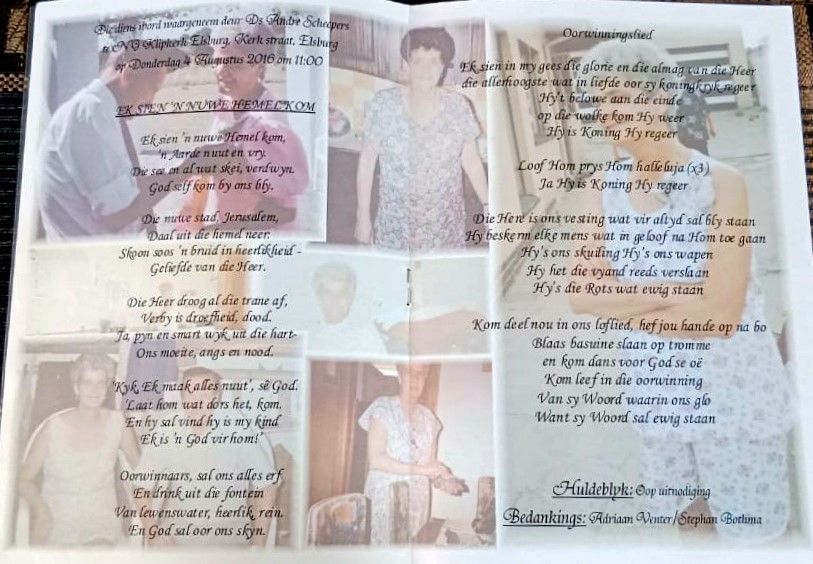 Die diens word waargeneem deur Ds Andre Scheepers
te NG Klipkerk Elsburg, Kerk straat, Elsburg
op Donderdag 4 Augustus 2016 om 11:00
EK SIEN 'N NUWE HEMEL KOM
Ek sien 'n nuwe Hemel kom,
'n Aarde nuut en vry.
Die see en al wat skei, verdwyn.
God self kom by ons bly.
Die nuwe stad, Jerusalem,
Daal uit die hemel neer.
Skoon soos 'n bruid in heerlikheid -
Geliefde van die Heer.
Die Heer droog al die trane af,
Verby is droefheid, dood.
Ja, pyn en smart wyk uit die hart-
Ons moeite, angs en nood.
'Kyk, Ek maak alles nuut', sê God.
'Laat hom wat dors het, kom.
En hy sal vind hy is my kind
Ek is 'n God vir hom!'
Oorwinnaars, sal ons alles erf
En drink uit die fontein
Van lewenswater, heerlik, rein.
En God sal oor ons skyn.
Oorwinningslied
Ek sien in my gees die glorie en die almag van die Heer
die allerhoogste wat in liefde oor sy koningkryk regeer
Hy't belowe aan die einde
op die wolke kom Hy weer
Hy is Koning Hy regeer
Loof Hom prys Hom halleluja (x3)
Ja Hy is Koning Hy regeer
Die Here is ons vesting wat vir altyd sal bly staan
Hy beskerm elke mens wat in geloof na Hom toe gaan
Hy's ons skuiling Hy's ons wapen
Hy het die vyand reeds verslaan
Hy's die Rots wat ewig staan
Kom deel nou in ons loflied, hef jou hande op na bo
Blaas basuine slaan op tromme
en kom dans voor God se oë
Kom leef in die oorwinning
Van sy Woord waarin ons glo
Want sy Woord sal ewig staan
Huldeblyk: Oop uitnodiging
Bedankings: Adriaan Venter/Stephan Bothma